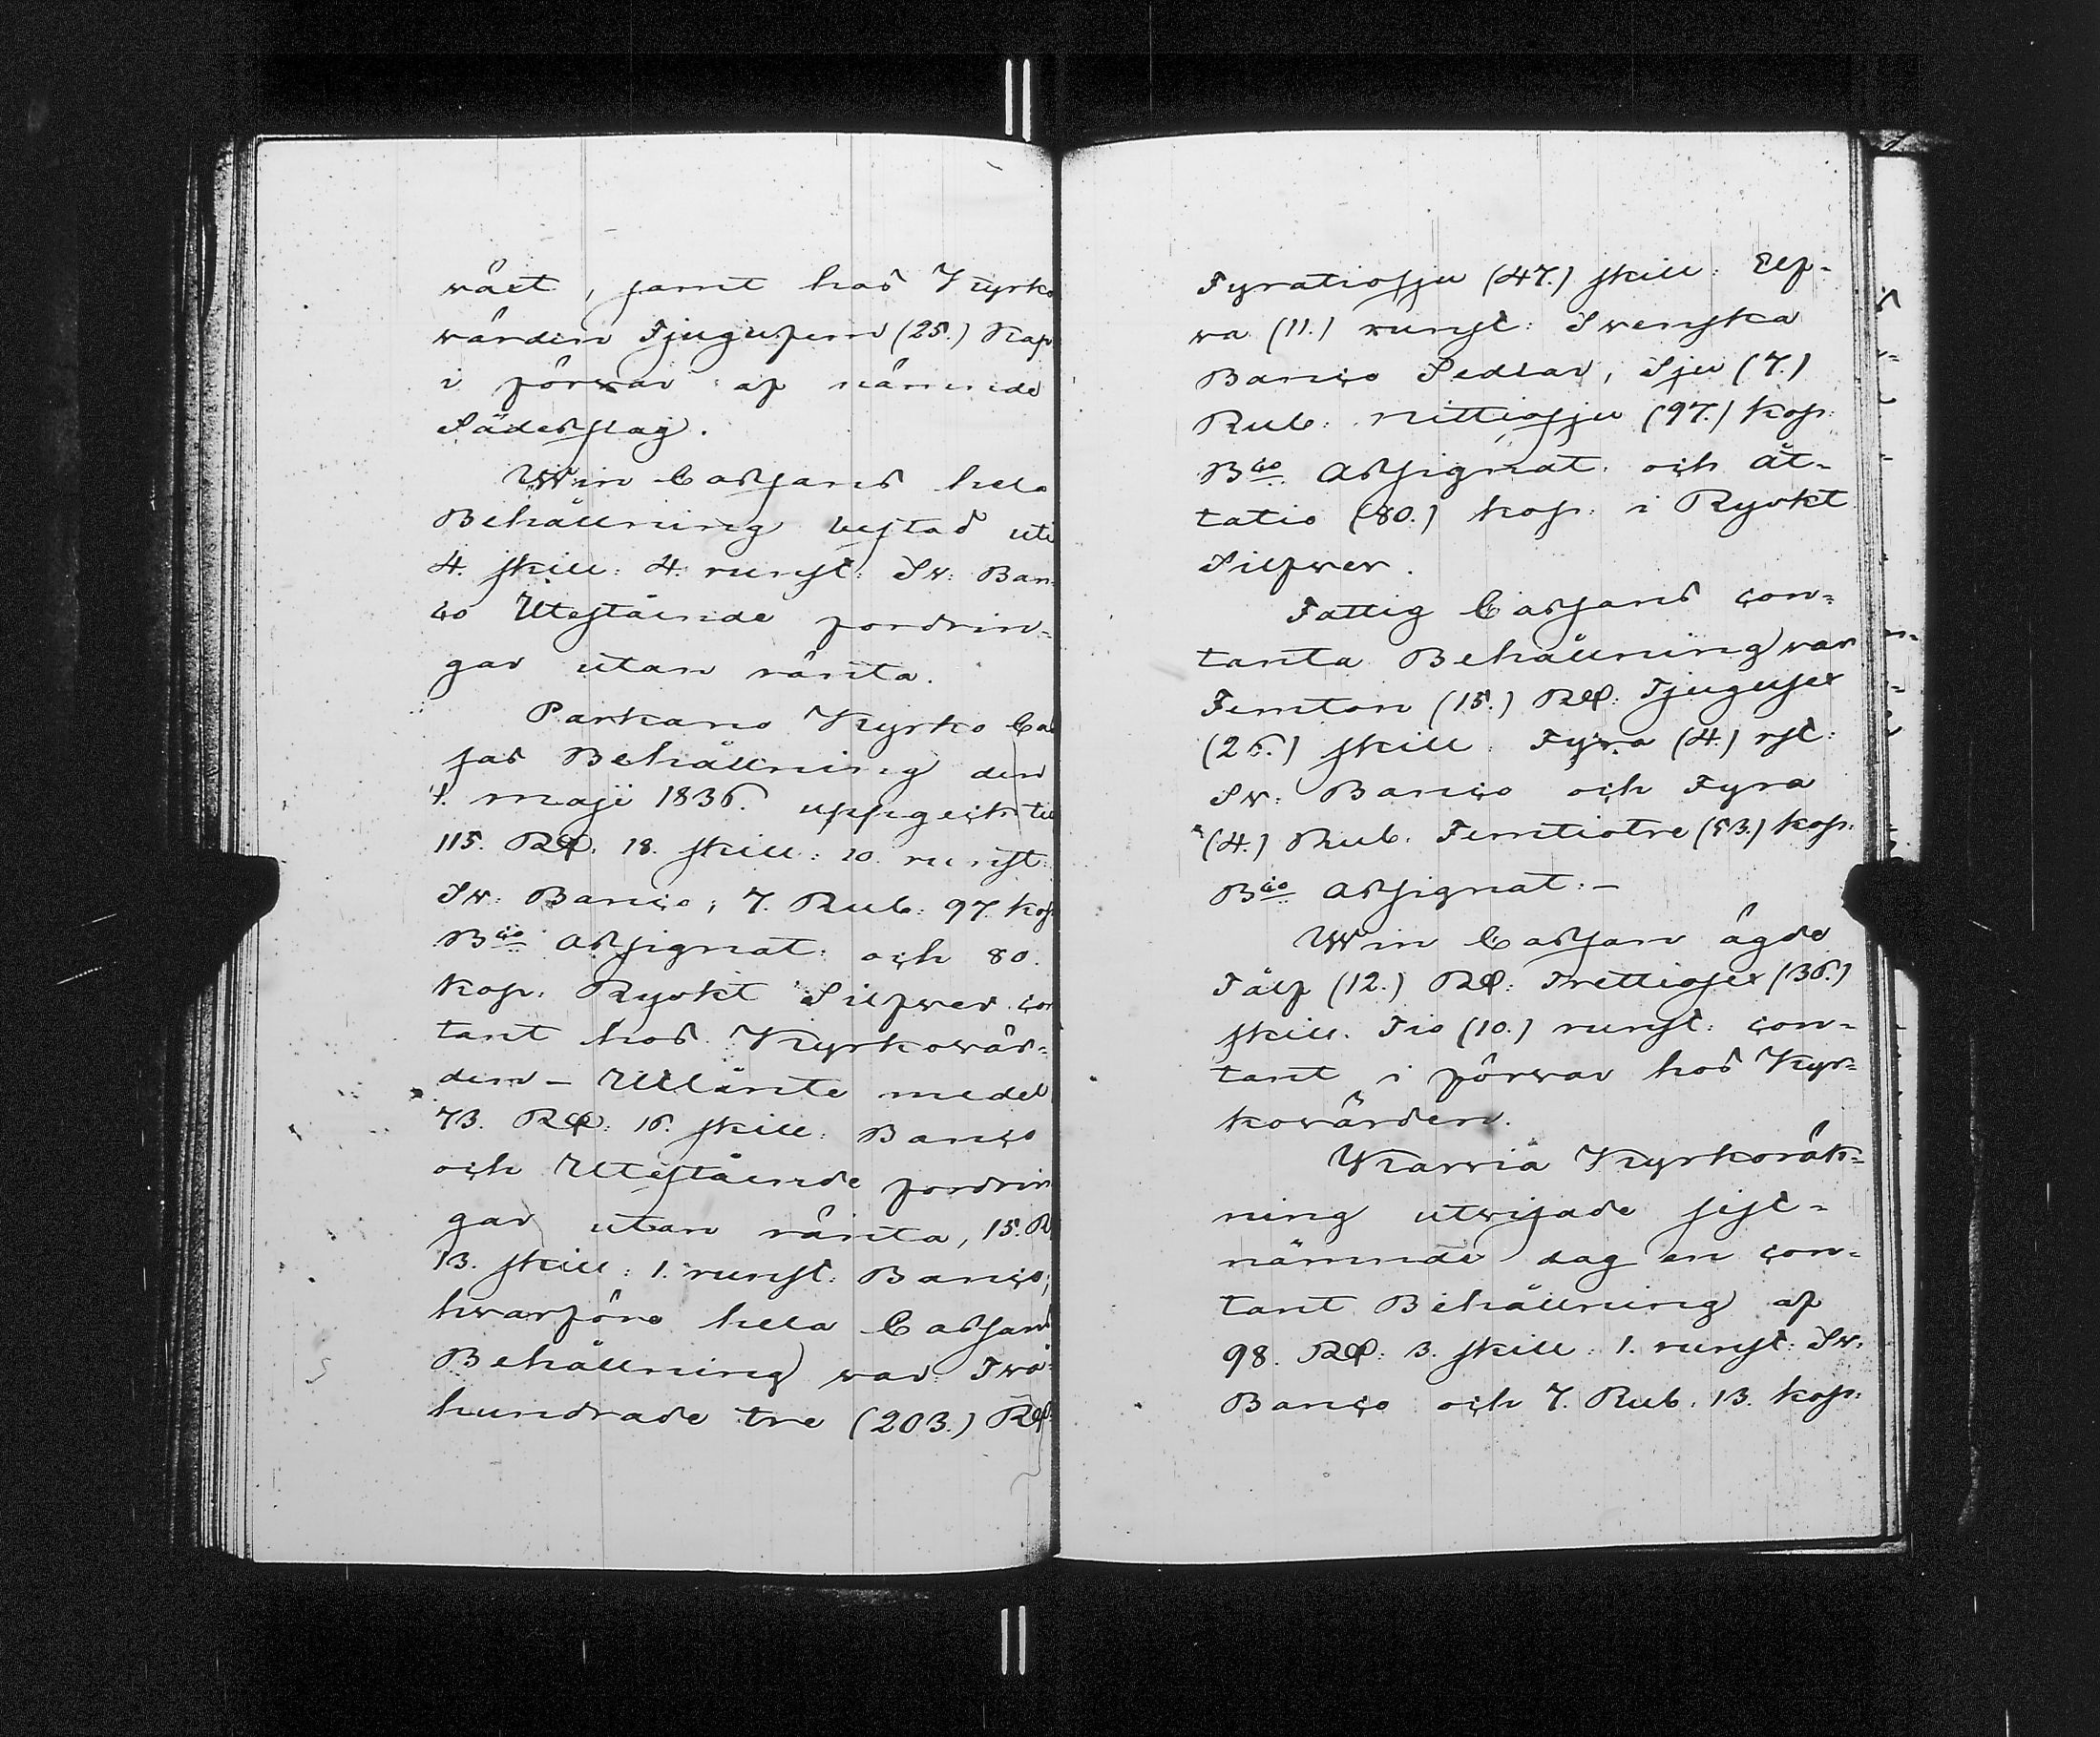 växt, samt hos Kyrko
wärden Tjugufem (25.) Kap
i förwar af nämnde
Sädesslag.
Win Cassans hela
Behållning bestod uti
4. skill: 4. runst: Sv: Ban-
co Utestående fordrin-
gar utan ränta.
Parkano Kyrko Cas
sas Behållning den
1. Maji 1836. uppgick till
115. Rd. 18. skill: 10. runst:
Sv: Banco; 7. Rub: 97. kop
Bco Assignat: och 80.
kop. Ryskt Silfwer con
tant hos Kyrkowär-
den – Utlånte medel
73. Rd: 16. skill: Banco
och Utestående fordrin
gar utan ränta, 15. R
13. skill: 1. runst: Banco;
hwarföre hela Cassans
Behållning war Twå-
hundrade tre (203.) Rd:
Fyratiosju (47.) skill: Elf-
va (11.) runst: Swenska
Banco Sedlar, Sju (7.)
Rub: Nittiosju (97.) kop:
Bco Assignat: och åt-
tatio (80.) kop: i Ryskt
Silfwer.
Fattig Cassans con-
tanta Behållning war
Femton (15.) Rd: Tjugusex
(26.) skill: Fyra (4.) rst:
Sv: Banco och Fyra
(4.) Rub. Femtiotre (53.) kop.
Bco Assignat: –
Win Cassan ägde
Tålf (12.) Rd: Trettiosex (36.)
skill. Tio (10.) runst: con-
tant i förwar hos Kyr-
kowärden.
Karvia Kyrkoräk-
ning utwisade sist-
nämnde dag en con-
tant Behållning af
98. Rd: 3. skill: 1. runst: Sv:
Banco och 7. Rub. 13. kop: